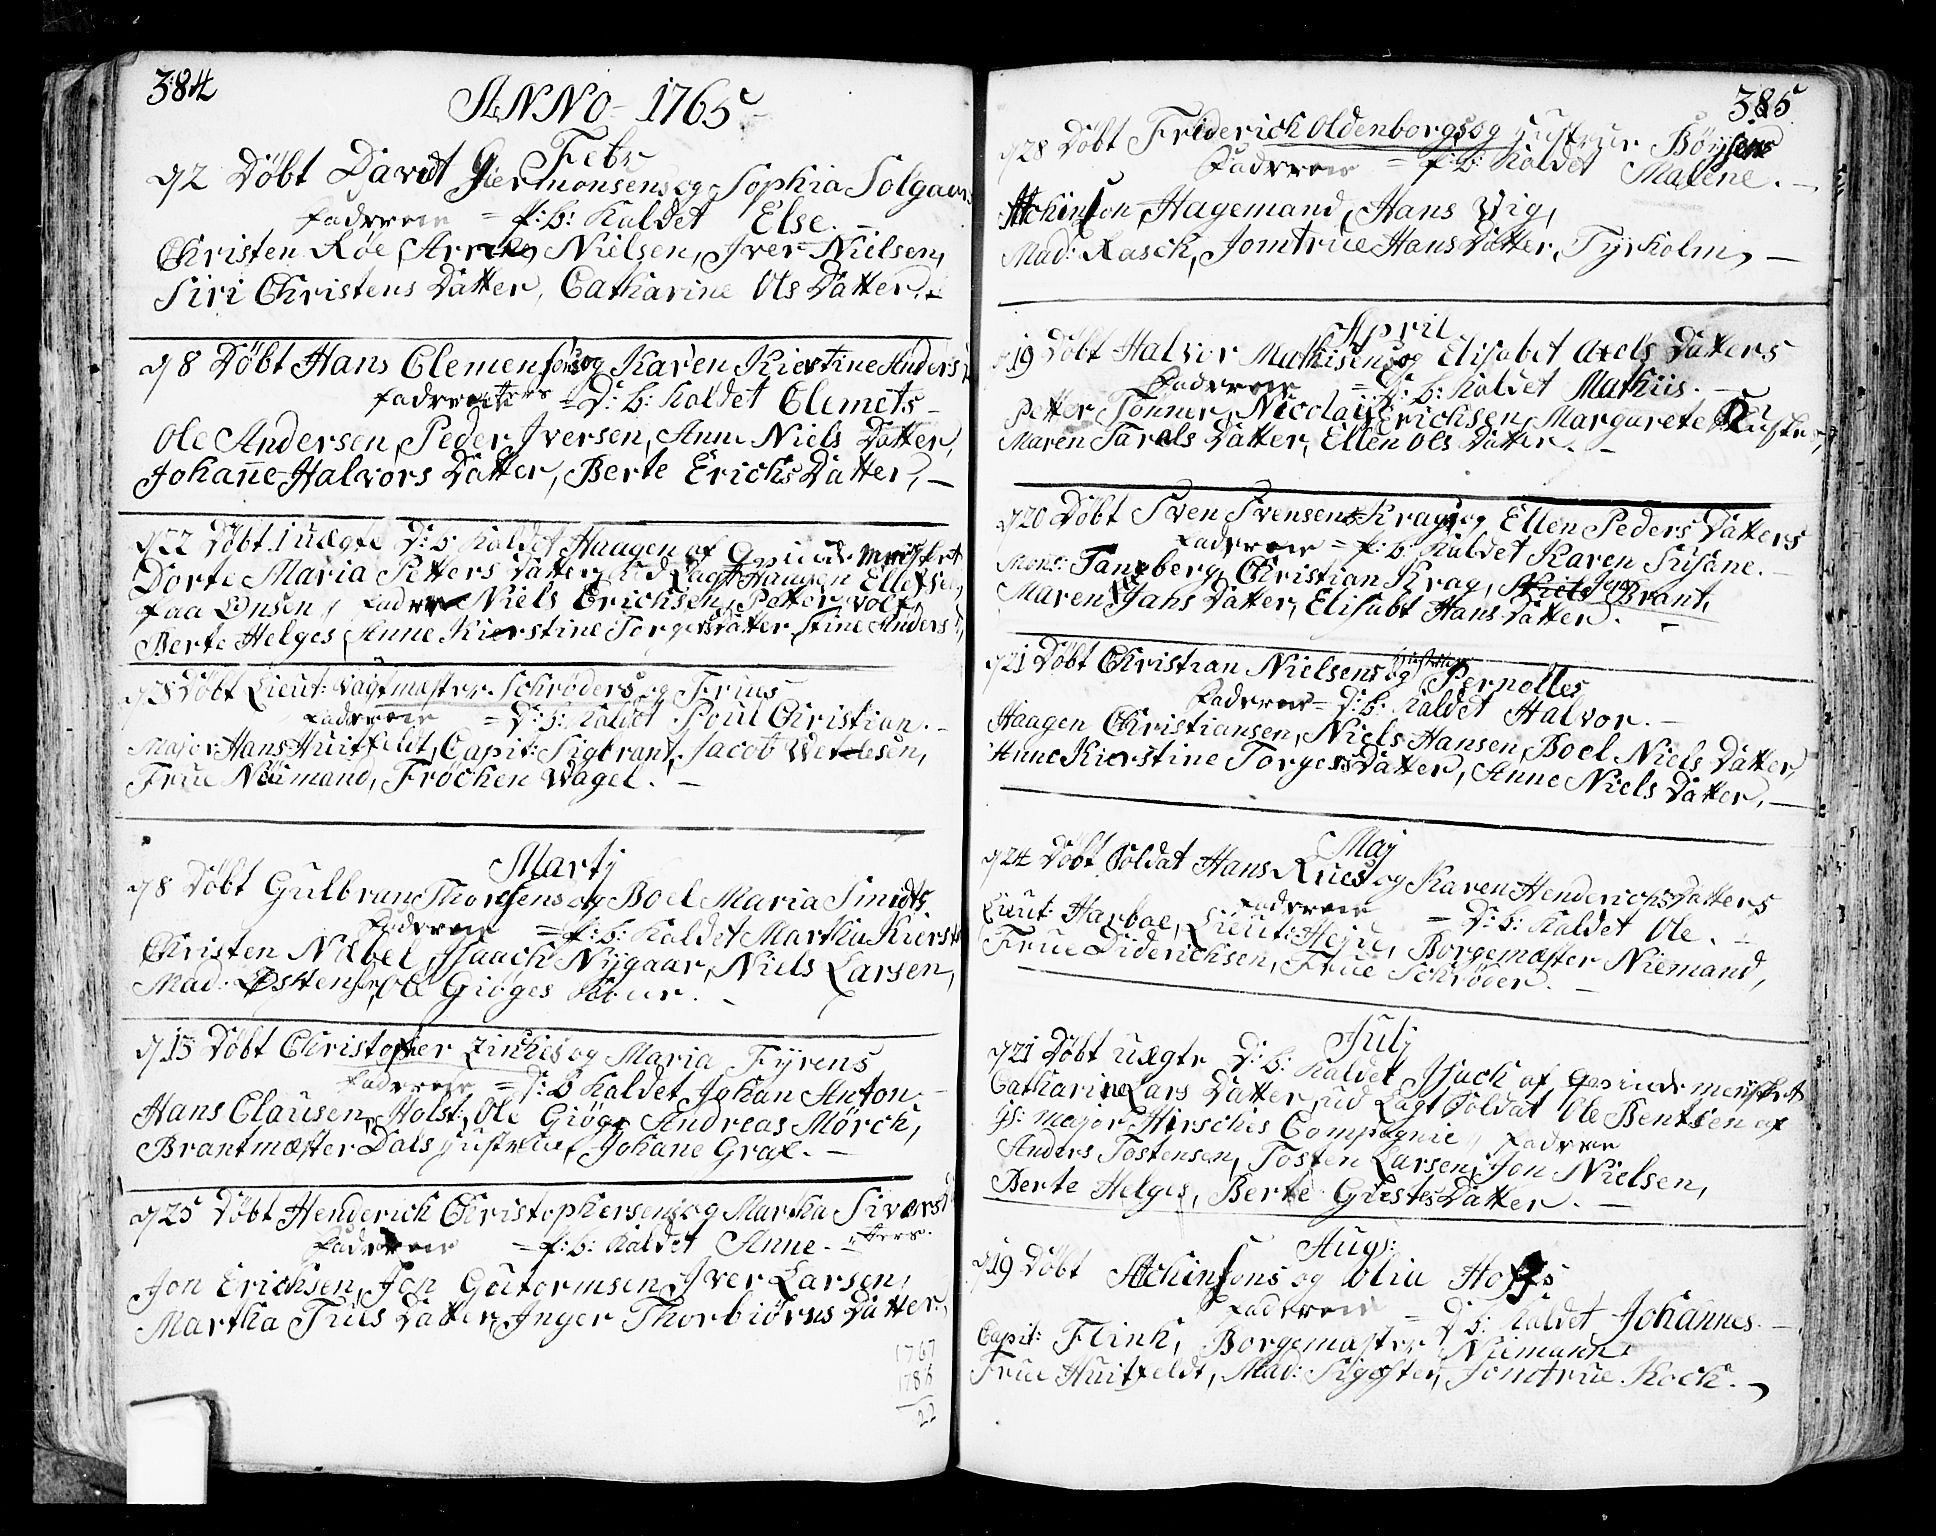 384
ANNO 1765
Febr
d/2 Döbt David Giermonsens og Sophia Solgaars
Fadderne = P: B: Kaldet Else. —
Christen Röe, Nielsen, Iver Nielsen,
Siri Christens Datter, Catharine Ols Datter. —
d/8 Döbt Hans Clemensöns og Karen Kierstine Anders
Fadderne tters = D: B: Kaldet Clemets —
Ole Andersen, Peder Iversen, Anne Niels Datter,
Johanne Halvors Datter, Berte Erichs Datter, —
d/22 Döbt 1 uægte D: B: Kaldet Haagen af Qvinde Mennisket
Dorte Maria Petters Datter, ud Lagt Haagen Ellefsen
paa Fadder Niels Erichsen, Petter Wolf,
Berte Helges, Anne Kierstine Torgers Datter, Stine Anders D,
Döbt Lieut: Vagtmæster Schröders og Frues
Fadderne = D: B: Kaldet Poul Christian. —
Major Hans Huitfeldt, Capit: Sigbrant, Jacob Wetlesen,
Frue Niemand, Fröcken Wagel. —
Martj
d/8 Döbt Gulbran Thoresens og Boel Maria Smidts
Fadderne = P: B: Kaldet Martha Kierst
Christen Nabel, Isaach Nÿgaar, Niels Larsen,
Mad: Östensen, Ole Giöges —
d/13 Döbt Christopher Zinckes og Maria Fÿrens
Fadderne = D: B Kaldet Johan Anton —
Hans Clausen, Holst, Ole Giöge Andreas Mörch,
Brantmæster Dals Hustrue, Johane Grae. —
d/25 Döbt Henderich Christophersens og Martha Sivers D
Fadderne = P: B: Kaldet Anne. = tters.
Jon Erichsen, Jon Gutormsen, Iver Larsen,
Martha Trues Datter, Inger Thorbiörns Datter,
1767
1786
22
385
d/28 Döbt Friderich Oldenborgs og Hustrue Böysens
Fadderne = P: B: Kaldet Malene. —
Atchinson, Hagemand, Hans Vig,
Mad: Rasch, Jomfrue Hans Datter, Tyrholm, —
April
d/19 Döbt Halvor Mathisens og Elisabet Axels Datters
Fadderne = D: B: Kaldet Mathiis. —
Petter Tönner, Nicolaij Erichsen, Margarete
Maren Tarals Datter, Ellen Ols Datter. —
d/20 Döbt Sven Svensens Krags og Ellen Peders Datters
Fadderne = P: B: Kaldet Karen Susane. —
Mons: Tangberg, Christian Krag, Niels Brant,
Maren Jahs Datter, Elisabt Hans Datter. —
d/21 Döbt Christian Nielsens og Hustrue Pernolles
Fadderne = D: B: Kaldet Halvor. —
Haagen Christiansen, Niels Hansen, Boel Niels Datter,
Anne Kierstine Torgers Datter, Anne Niels Datter. —
Maj
d/24 Döbt Soldat Hans Rues og Karen Henderichs Datters
Fadderne = D: B: Kaldet Ole. —
Lieut: Harboe, Lieut: Heju, Borgemæster Niemand,
Frue Diderichsen, Frue Schröder. —
Julj
d/21 Döbt uægte D: B: Kaldet Isach af Qvinde mennisket
Catharine Lars Datter, ud Lagt Soldat Ole Bentsen af
Hr: Major Hirsches Compagnie, Fadderne
Anders Tostensen, Tosten Larsen, Jon Nielsen,
Berte Helges, Berte Giests Datter. —
Augs:
d/19 Döbt Atchinsons og Olia Hoffs
Fadderne = D: B: Kaldet Johannes. —
Capit: Flink, Borgemæster Niemann
Frue Huitfeldt, Mad: Jomfrue Kock. —